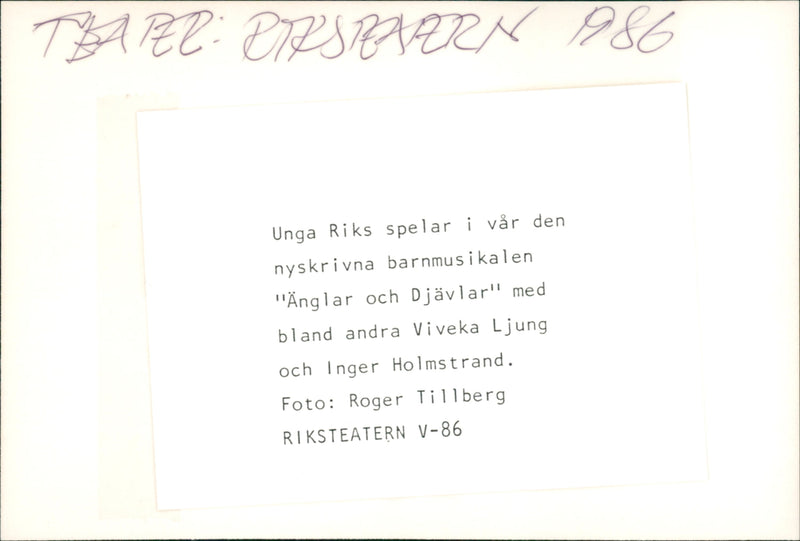 TEATER: RIKSTEATERN 1986
Unga Riks spelar i vår den
nyskrivna barnmusikalen
"Änglar och Djävlar" med
bland andra Viveka Ljung
och Inger Holmstrand.
Foto: Roger Tillberg
RIKSTEATERN V-86